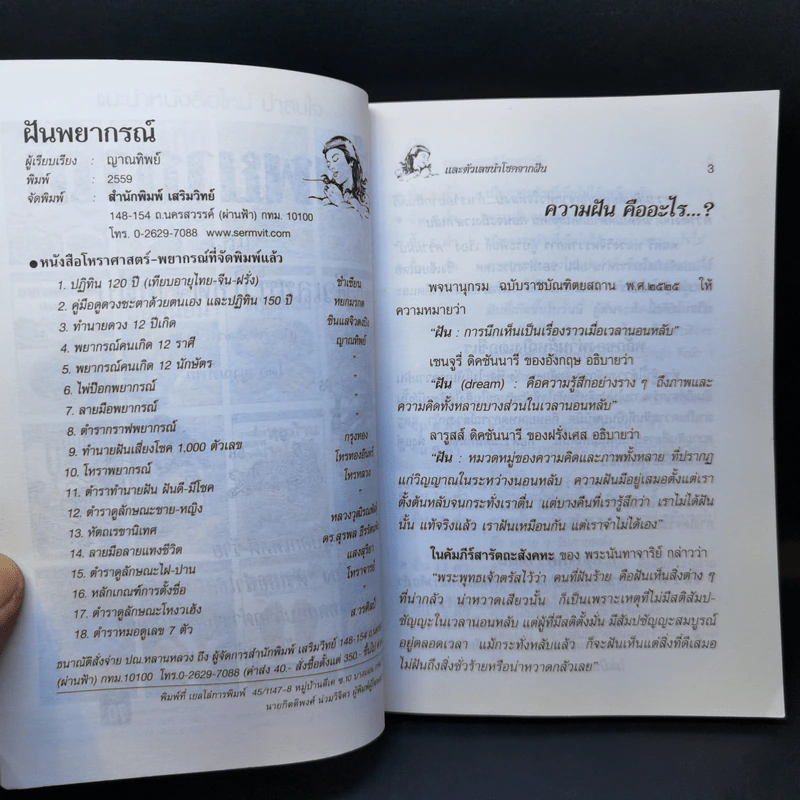 ฝันพยากรณ์
ผู้เรียบเรียง : ญาณทิพย์
พิมพ์ : 2559
จัดพิมพ์ : สำนักพิมพ์ เสริมวิทย์
148-154 ถ.นครสวรรค์ (ผ่านฟ้า) กทม. 10100
โทร. 0-2629-7088 www.sermvit.com
● หนังสือโหราศาสตร์-พยากรณ์ที่จัดพิมพ์แล้ว
1. ปฏิทิน 120 ปี (เทียบอายุไทย-จีน-ฝรั่ง) ซ้าเซียน
2. คู่มือดูดวงชะตาด้วยตนเอง และปฏิทิน 150 ปี หยกมรกต
3. ทำนายดวง 12 ปีเกิด ซินแสจิวตงเปิง
4. พยากรณ์คนเกิด 12 ราศี ญาณทิพย์
5. พยากรณ์คนเกิด 12 นักษัตร "
6. ไพ่ป๊อกพยากรณ์ "
7. ลายมือพยากรณ์ "
8. ตำรากราฟพยากรณ์ "
9. ทำนายฝันเสี่ยงโชค 1,000 ตัวเลข กรุงทอง
10. โหราพยากรณ์ โหรทองอินทร์
11. ตำราทำนายฝัน ฝันดี-มีโชค โหรหลวง
12. ตำราดูลักษณะชาย-หญิง "
13. หัตถเรขานิเทศ หลวงวุฒิรณพัสดุ์
14. ลายมือลายแทงชีวิต ดร.สุรพล
15. ตำราดูลักษณะไฝ-ปาน แสงสุริยา
16. หลักเกณฑ์การตั้งชื่อ โหราจารย์
17. ตำราดูลักษณะโหงวเฮ้ง "
18. ตำราหมอดูเลข 7 ตัว ส.วรศิลป์
ธนาณัติสั่งจ่าย ปณ.หลานหลวง ถึง ผู้จัดการสำนักพิมพ์ เสริมวิทย์ 148-154 ถ.
(ผ่านฟ้า) กทม.10100 โทร.0-2629-7088 (ค่าส่ง 40.- สั่งซื้อตั้งแต่ 350.-
พิมพ์ที่ เยลโล่การพิมพ์ 45/1147-8 หมู่บ้านดีเค ซ.10
นายกิตติพงศ์ น่วมวิจิตร
และตัวเลขนำโชคจากฝัน 3
ความฝัน คืออะไร...?
พจนานุกรม ฉบับราชบัณฑิตยสถาน พ.ศ.๒๕๒๕ ให้
ความหมายว่า
"ฝัน : การนึกเห็นเป็นเรื่องราวเมื่อเวลานอนหลับ"
เซนจูรี่ ดิคชันนารี ของอังกฤษ อธิบายว่า
"ฝัน (dream) : คือความรู้สึกอย่างราง ๆ ถึงภาพและ
ความคิดทั้งหลายบางส่วนในเวลานอนหลับ"
ลารูสส์ ดิคชันนารี ของฝรั่งเศส อธิบายว่า
"ฝัน : หมวดหมู่ของความคิดและภาพทั้งหลาย ที่ปรากฏ
แก่วิญญาณในระหว่างนอนหลับ ความฝันมีอยู่เสมอตั้งแต่เรา
ตั้งต้นหลับจนกระทั่งเราตื่น แต่บางคืนที่เรารู้สึกว่า เราไม่ได้ฝัน
นั้น แท้จริงแล้ว เราฝันเหมือนกัน แต่เราจำไม่ได้เอง"
ในคัมภีร์สารัตถะสังคหะ ของ พระนันทาจาริย์ กล่าวว่า
"พระพุทธเจ้าตรัสไว้ว่า คนที่ฝันร้าย คือฝันเห็นสิ่งต่าง ๆ
ที่น่ากลัว น่าหวาดเสียวนั้น ก็เป็นเพราะเหตุที่ไม่มีสติสัมป-
ชัญญะในเวลานอนหลับ แต่ผู้ที่มีสติตั้งมั่น มีสัมปชัญญะสมบูรณ์
อยู่ตลอดเวลา แม้กระทั่งหลับแล้ว ก็จะฝันเห็นแต่สิ่งที่ดีเสมอ
ไม่ฝันถึงสิ่งชั่วร้ายหรือน่าหวาดกลัวเลย"